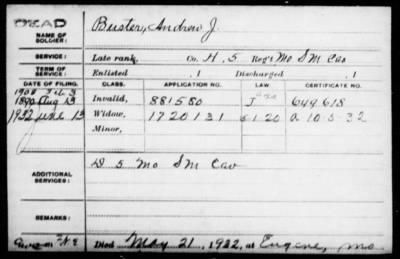 DEAD
NAME OF SOLDIER: Buster, Andrew J.
SERVICE: Late rank, Co. H. 5 Reg't Mo S M Cav
TERM OF SERVICE: Enlisted , 1 Discharged , 1
DATE OF FILING. CLASS. APPLICATION NO. LAW. CERTIFICATE NO.
1890 Aug 13 Invalid, 881580 649618
1932 June 13 Widow, 1720131 5 1 20 a 10-5-32
Minor,
ADDITIONAL SERVICES: D 5 Mo S M Cav
REMARKS:
Died May 21, 1932, at Eugene, Mo